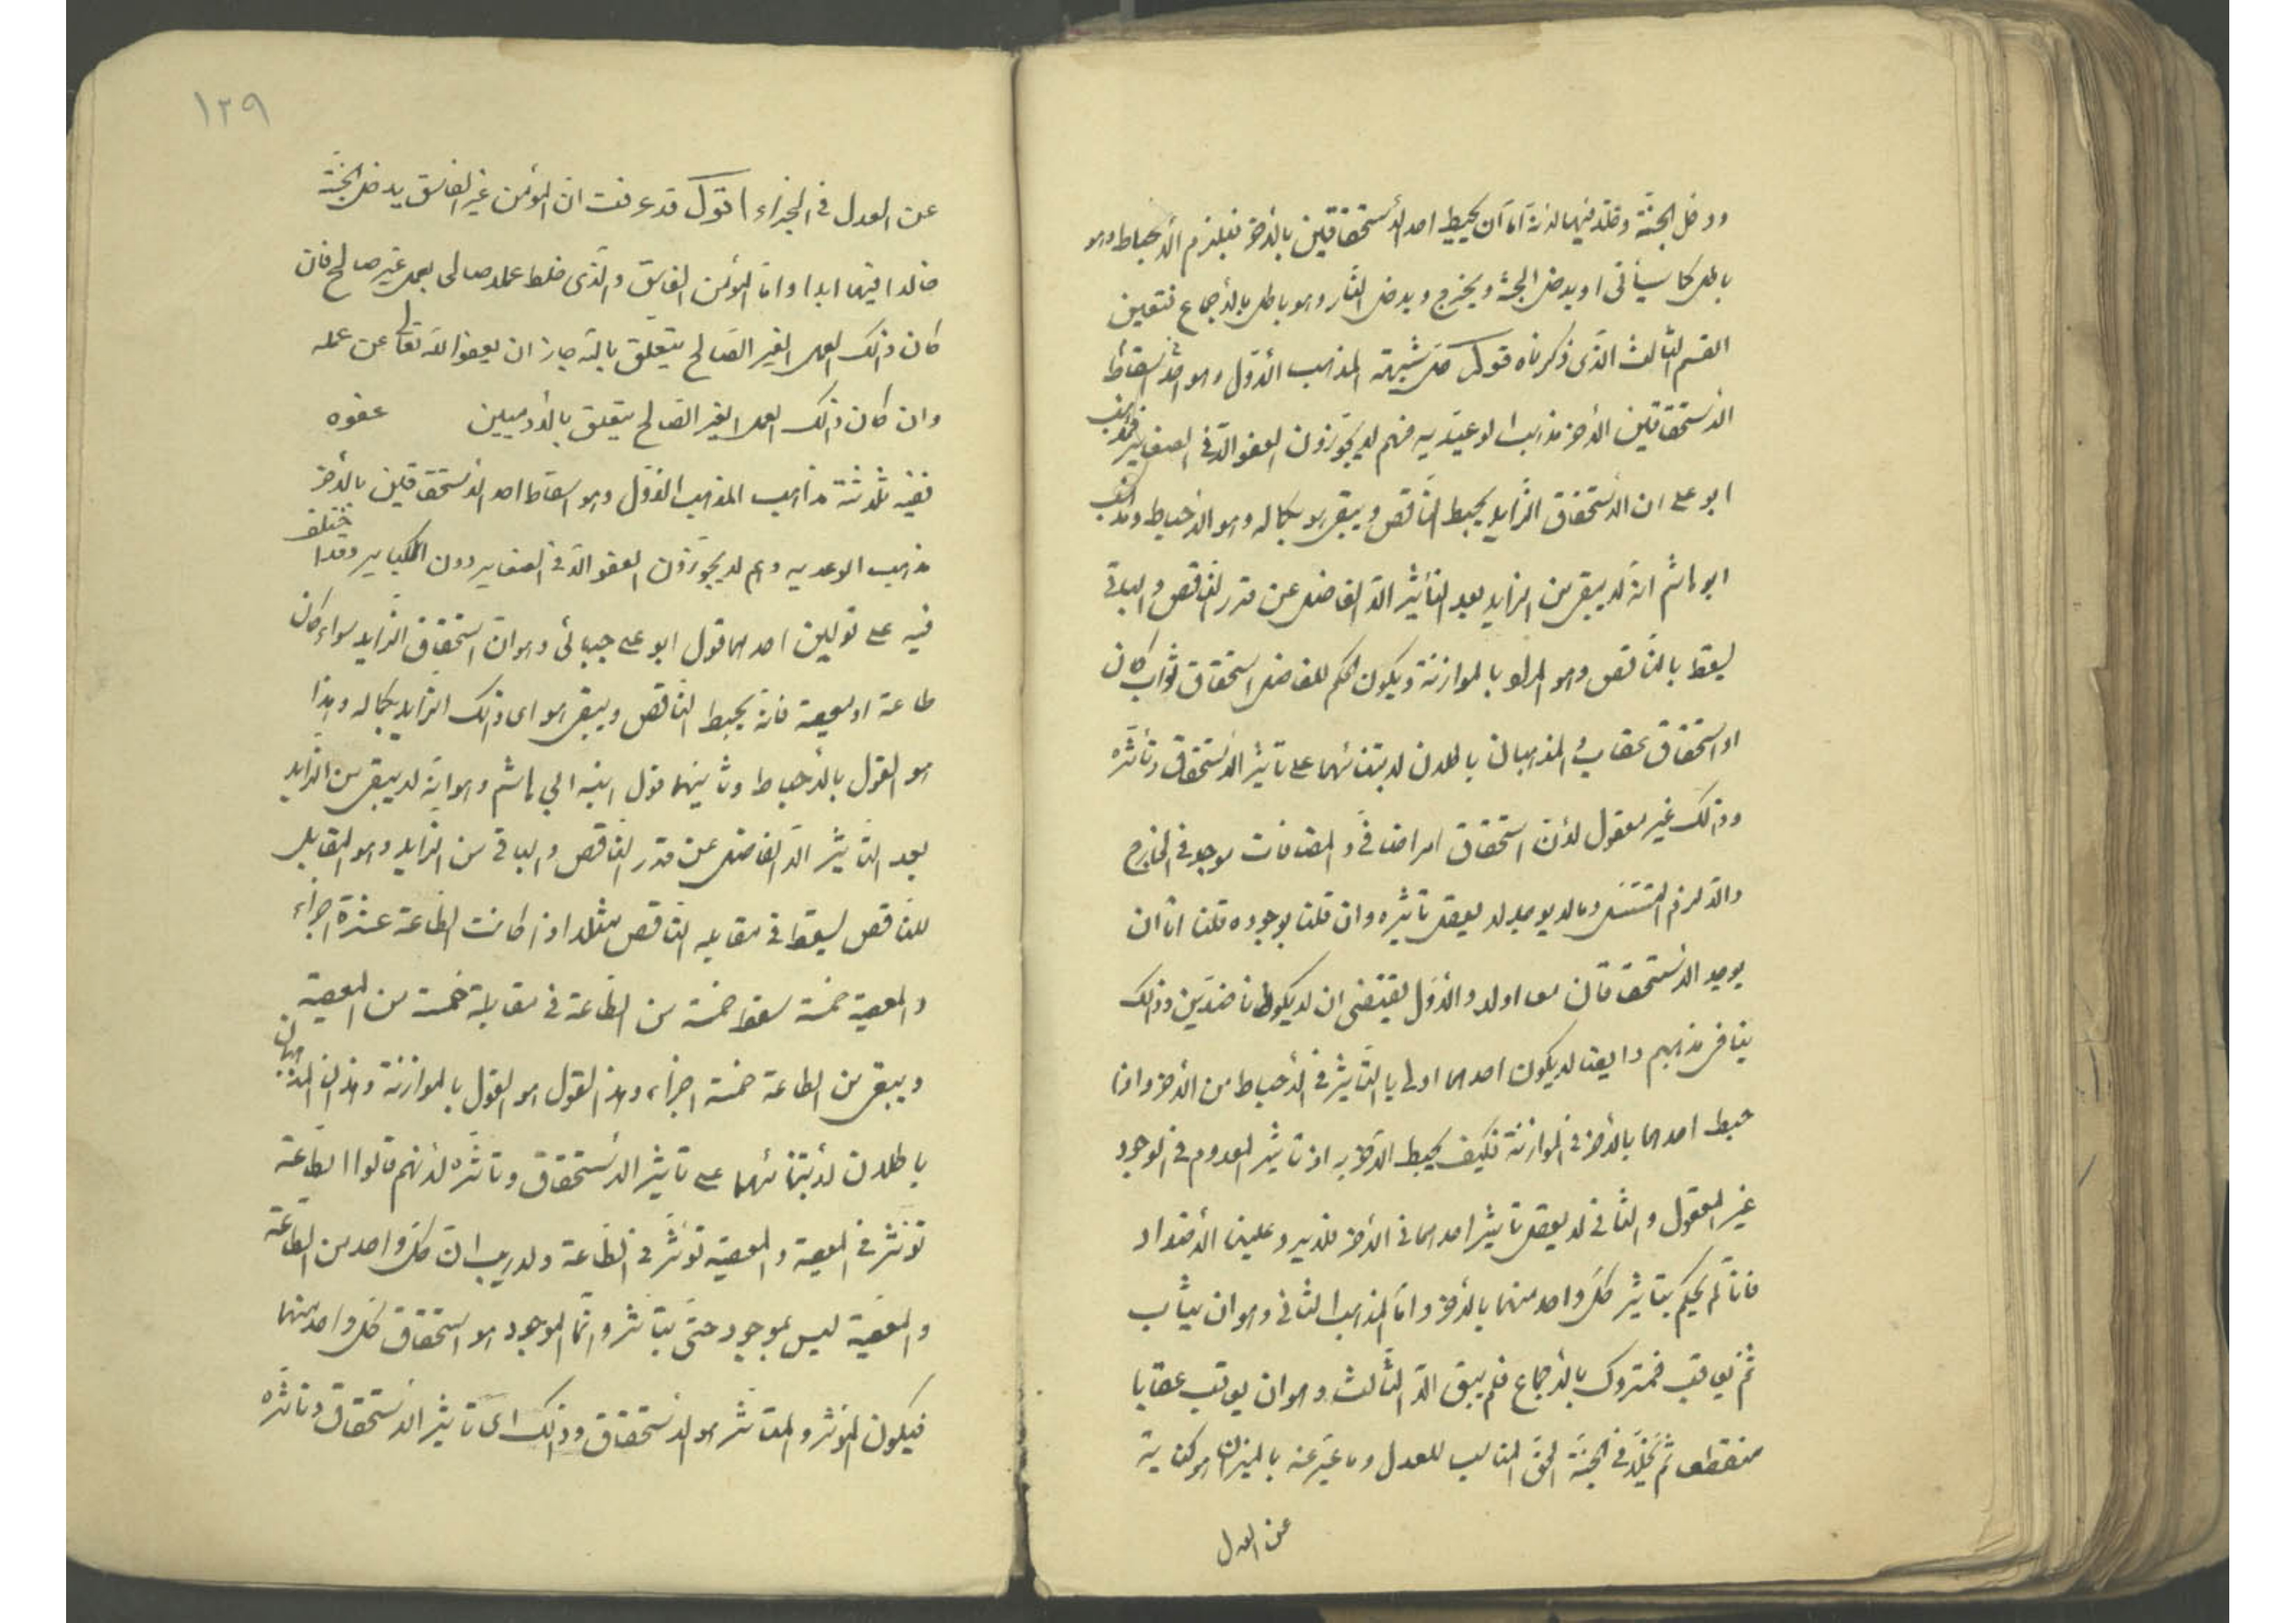 ودخل الجنة وخلد فيها لانه اما ان يحبط احد الاستحقاقين بالاخر فيلزم الاحباط وهو
باطل كما سيأتى او يدخل الجنة ويخرج ويدخل النار وهو باطل بالاجماع فتعين
القسم الثالث الذى ذكرناه قوله شبهة المذهب الاول وهو اسقاط
الاستحقاقين الاخر مذهب الوعيدية فانهم لا يجوزون العفو الا فى الصغاير فمذهب
ابو على ان الاستحقاق الزايد يحبط الناقص ويبقى هو بكماله وهو الاحباط ومذهب
ابو هاشم انه لا يبقى من الزايد بعد التأثير الا الفاضل عن قدر الناقص والباقى
يسقط بالناقص وهو المراد بالموازنة ويكون الحكم للفاضل استحقاق ثواب كان
او استحقاق عقاب والمذهبان باطلان لابتنائهما على تأثير الاستحقاق وتأثره
وذلك غير معقول لان استحقاق امر اضافى والمضافات موجود فى الخارج
والا لزم التسلسل وما لا يوجد لا يعقل تأثيره وان قلنا بوجوده قلنا اما ان
يوجد الاستحقاقان معا اولا والاول يقتضى ان لا يكونا ضدين وذلك
ينافى مذهبهم وايضا لا يكون احدهما اولى بالتأثير فى الاحباط من الاخر واذا
حبط احدهما بالاخر فى الموازنة فكيف يحبط الاخر به اذ تأثير المعدوم فى الوجود
غير المعقول والثانى لا يعقل تأثير احدهما فى الاخر فلا يرد علينا الاضداد
فانا لم نحكم بتأثير كل واحد منهما بالاخر واما المذهب الثانى وهو ان يثاب
ثم يعاقب فمتروك بالاجماع فلم يبق الا الثالث وهو ان يعاقب عقابا
منقطعا ثم يخلد فى الجنة الحق المناسب للعدل وما عبر عنه بالميزان هو كناية
عن العدل
١٢٩
عن العدل فى الجزاء اقول قد عرفت ان المؤمن غير الفاسق يدخل الجنة
خالدا فيها ابدا واما المؤمن الفاسق والذى خلط عملا صالحا بعمل غير صالح فان
كان ذلك العمل الغير الصالح يتعلق بالله جاز ان يعفو الله تعالى عن عمله
وان كان ذلك العمل الغير الصالح يتعلق بالادميين عفوه
ففيه ثلاثة مذاهب المذهب الاول وهو اسقاط احد الاستحقاقين بالاخر
مذهب الوعديه وهم لا يجوزون العفو الا فى الصغاير دون الكباير وقد اختلف
فيه على قولين احدهما قول ابو على جبائى وهو ان استحقاق الزايد سواء كان
طاعة او معصية فانه يحبط الناقص ويبقى هو اى ذلك الزايد بكماله وهذا
هو القول بالاحباط وثانيهما قول ابنه ابي هاشم وهو انه لا يبقى من الزايد
بعد التأثير الا الفاضل عن قدر الناقص والباقى من الزايد وهو المقابل
للناقص يسقط فى مقابله الناقص مثلا اذا كانت الطاعة عشرة اجزاء
والمعصية خمسة سقط خمسة من الطاعة فى مقابلة خمسة من المعصية
ويبقى من الطاعة خمسة اجزاء وهذا القول هو القول بالموازنة وهذان المذهبان
باطلان لابتنائهما على تأثير الاستحقاق وتأثره لانهم قالوا الطاعة
تؤثر فى المعصية والمعصية تؤثر فى الطاعة ولا ريب ان كل واحد من الطاعة
والمعصية ليس بموجود حتى يتأثر وانما الموجود هو استحقاق كل واحد منهما
فيكون المؤثر والمتأثر هو الاستحقاق وذلك اى تأثير الاستحقاق وتأثره